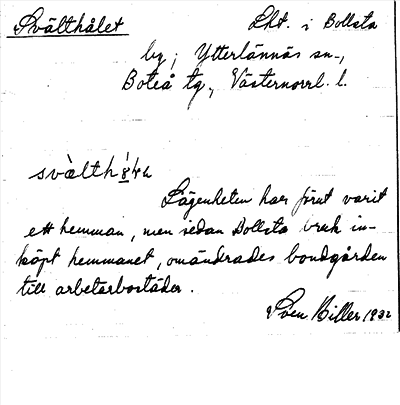 Svälthålet Lht. i Bollsta
by, Ytterlännäs sn.,
Boteå tg., Västernorrl. l.
Lägenheten har förut varit
ett hemman, men sedan Bollsta bruk in-
köpt hemmanet, omändrades bondgården
till arbetarbostäder.
Sven Biller 1932